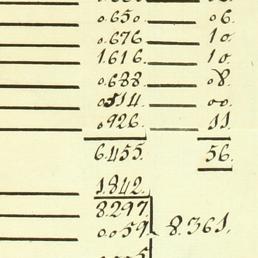 0.650. 06.
0.676 10.
1.616. 10.
0.688 08.
0.514 00.
0.926. 11.
6.455. 56.
1.842.
8.297.
0.059. 8.361.